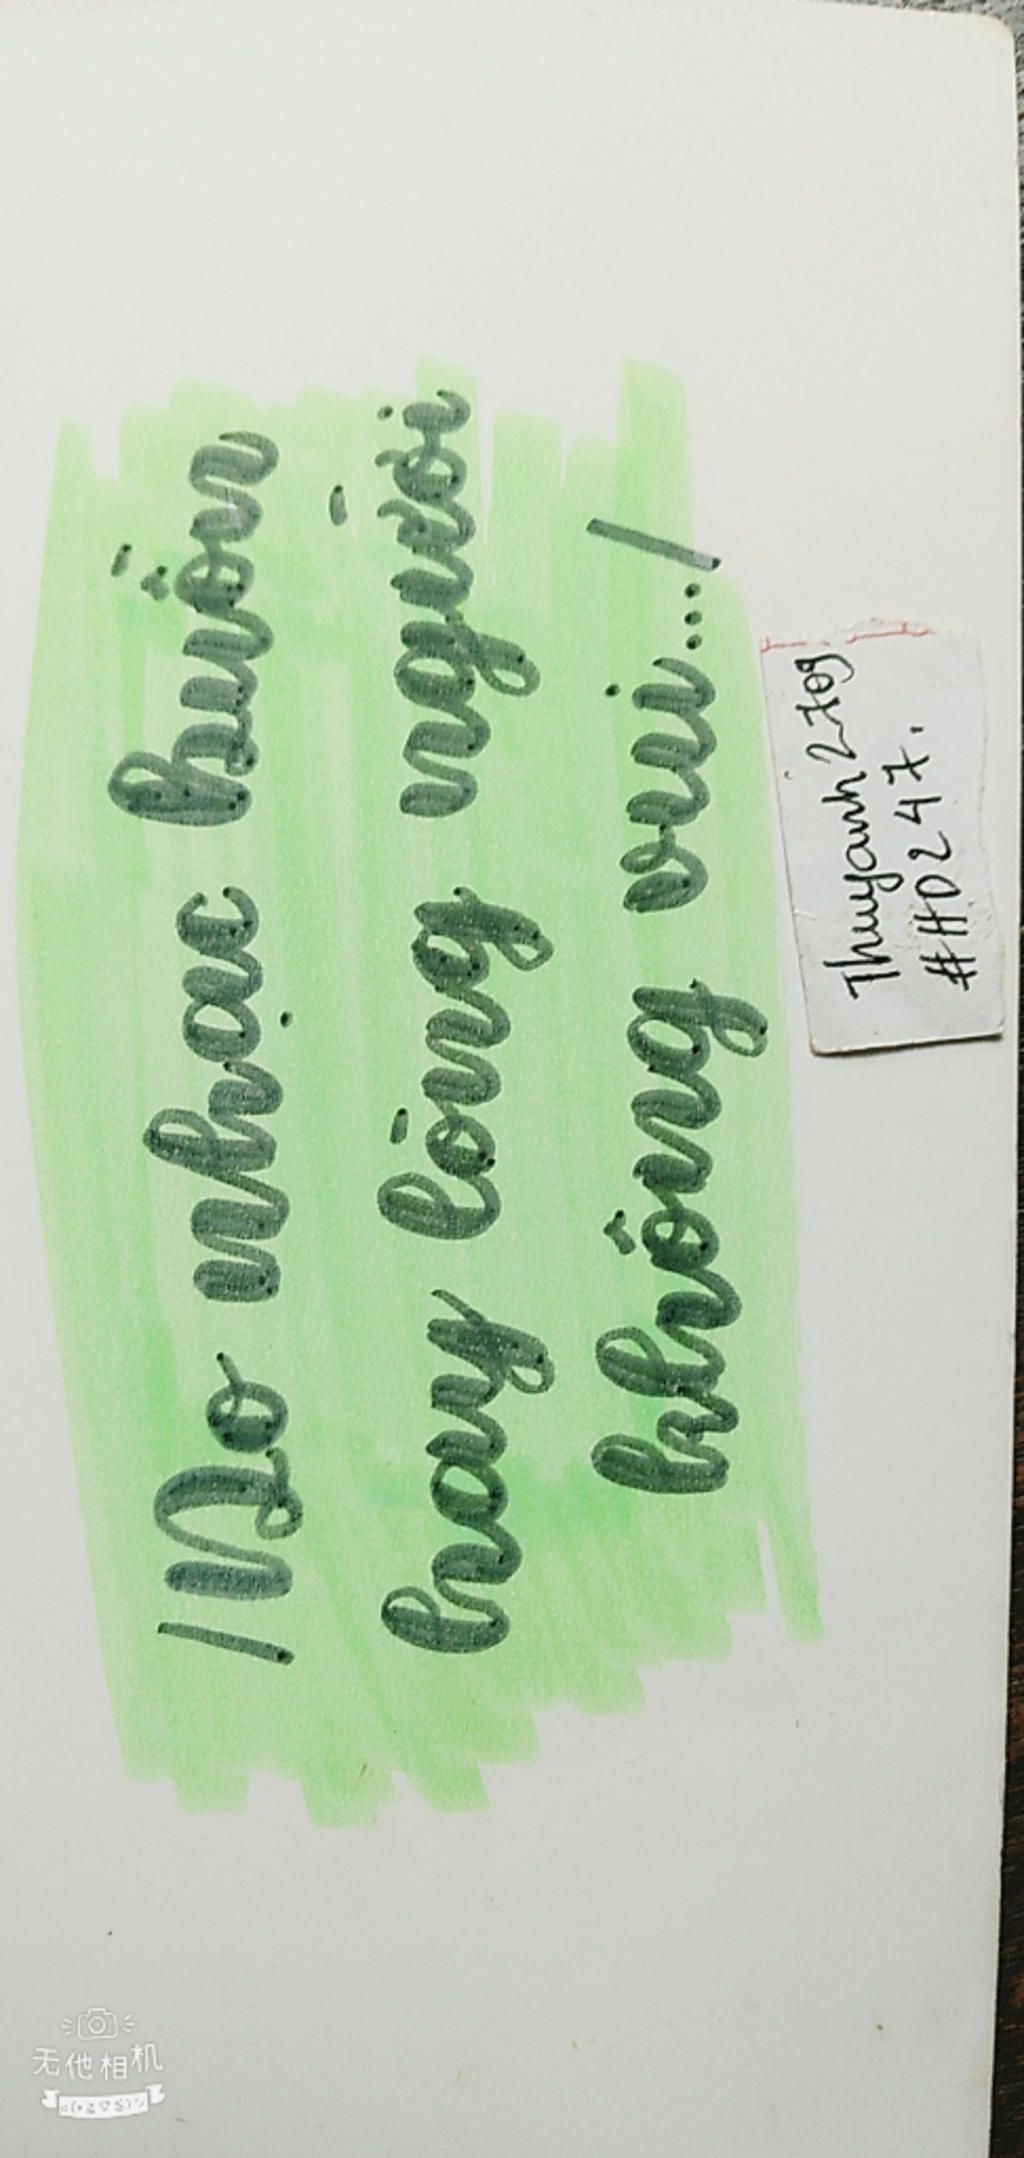 /Do nhạc buồn
hay lòng người
không vui.../
Thuyanh2709
#HD247.
无他相机